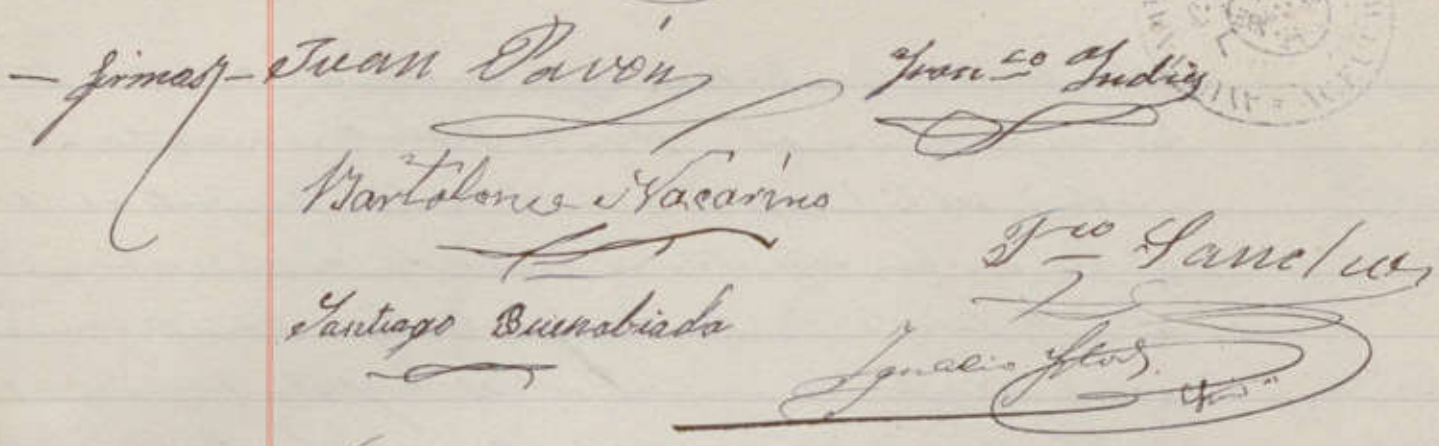 — firmas — Juan Pavón Franco Indies
Bartolome Nacarino
Fco Sanchez
Santiago Buenabiada
Ignacio Flor